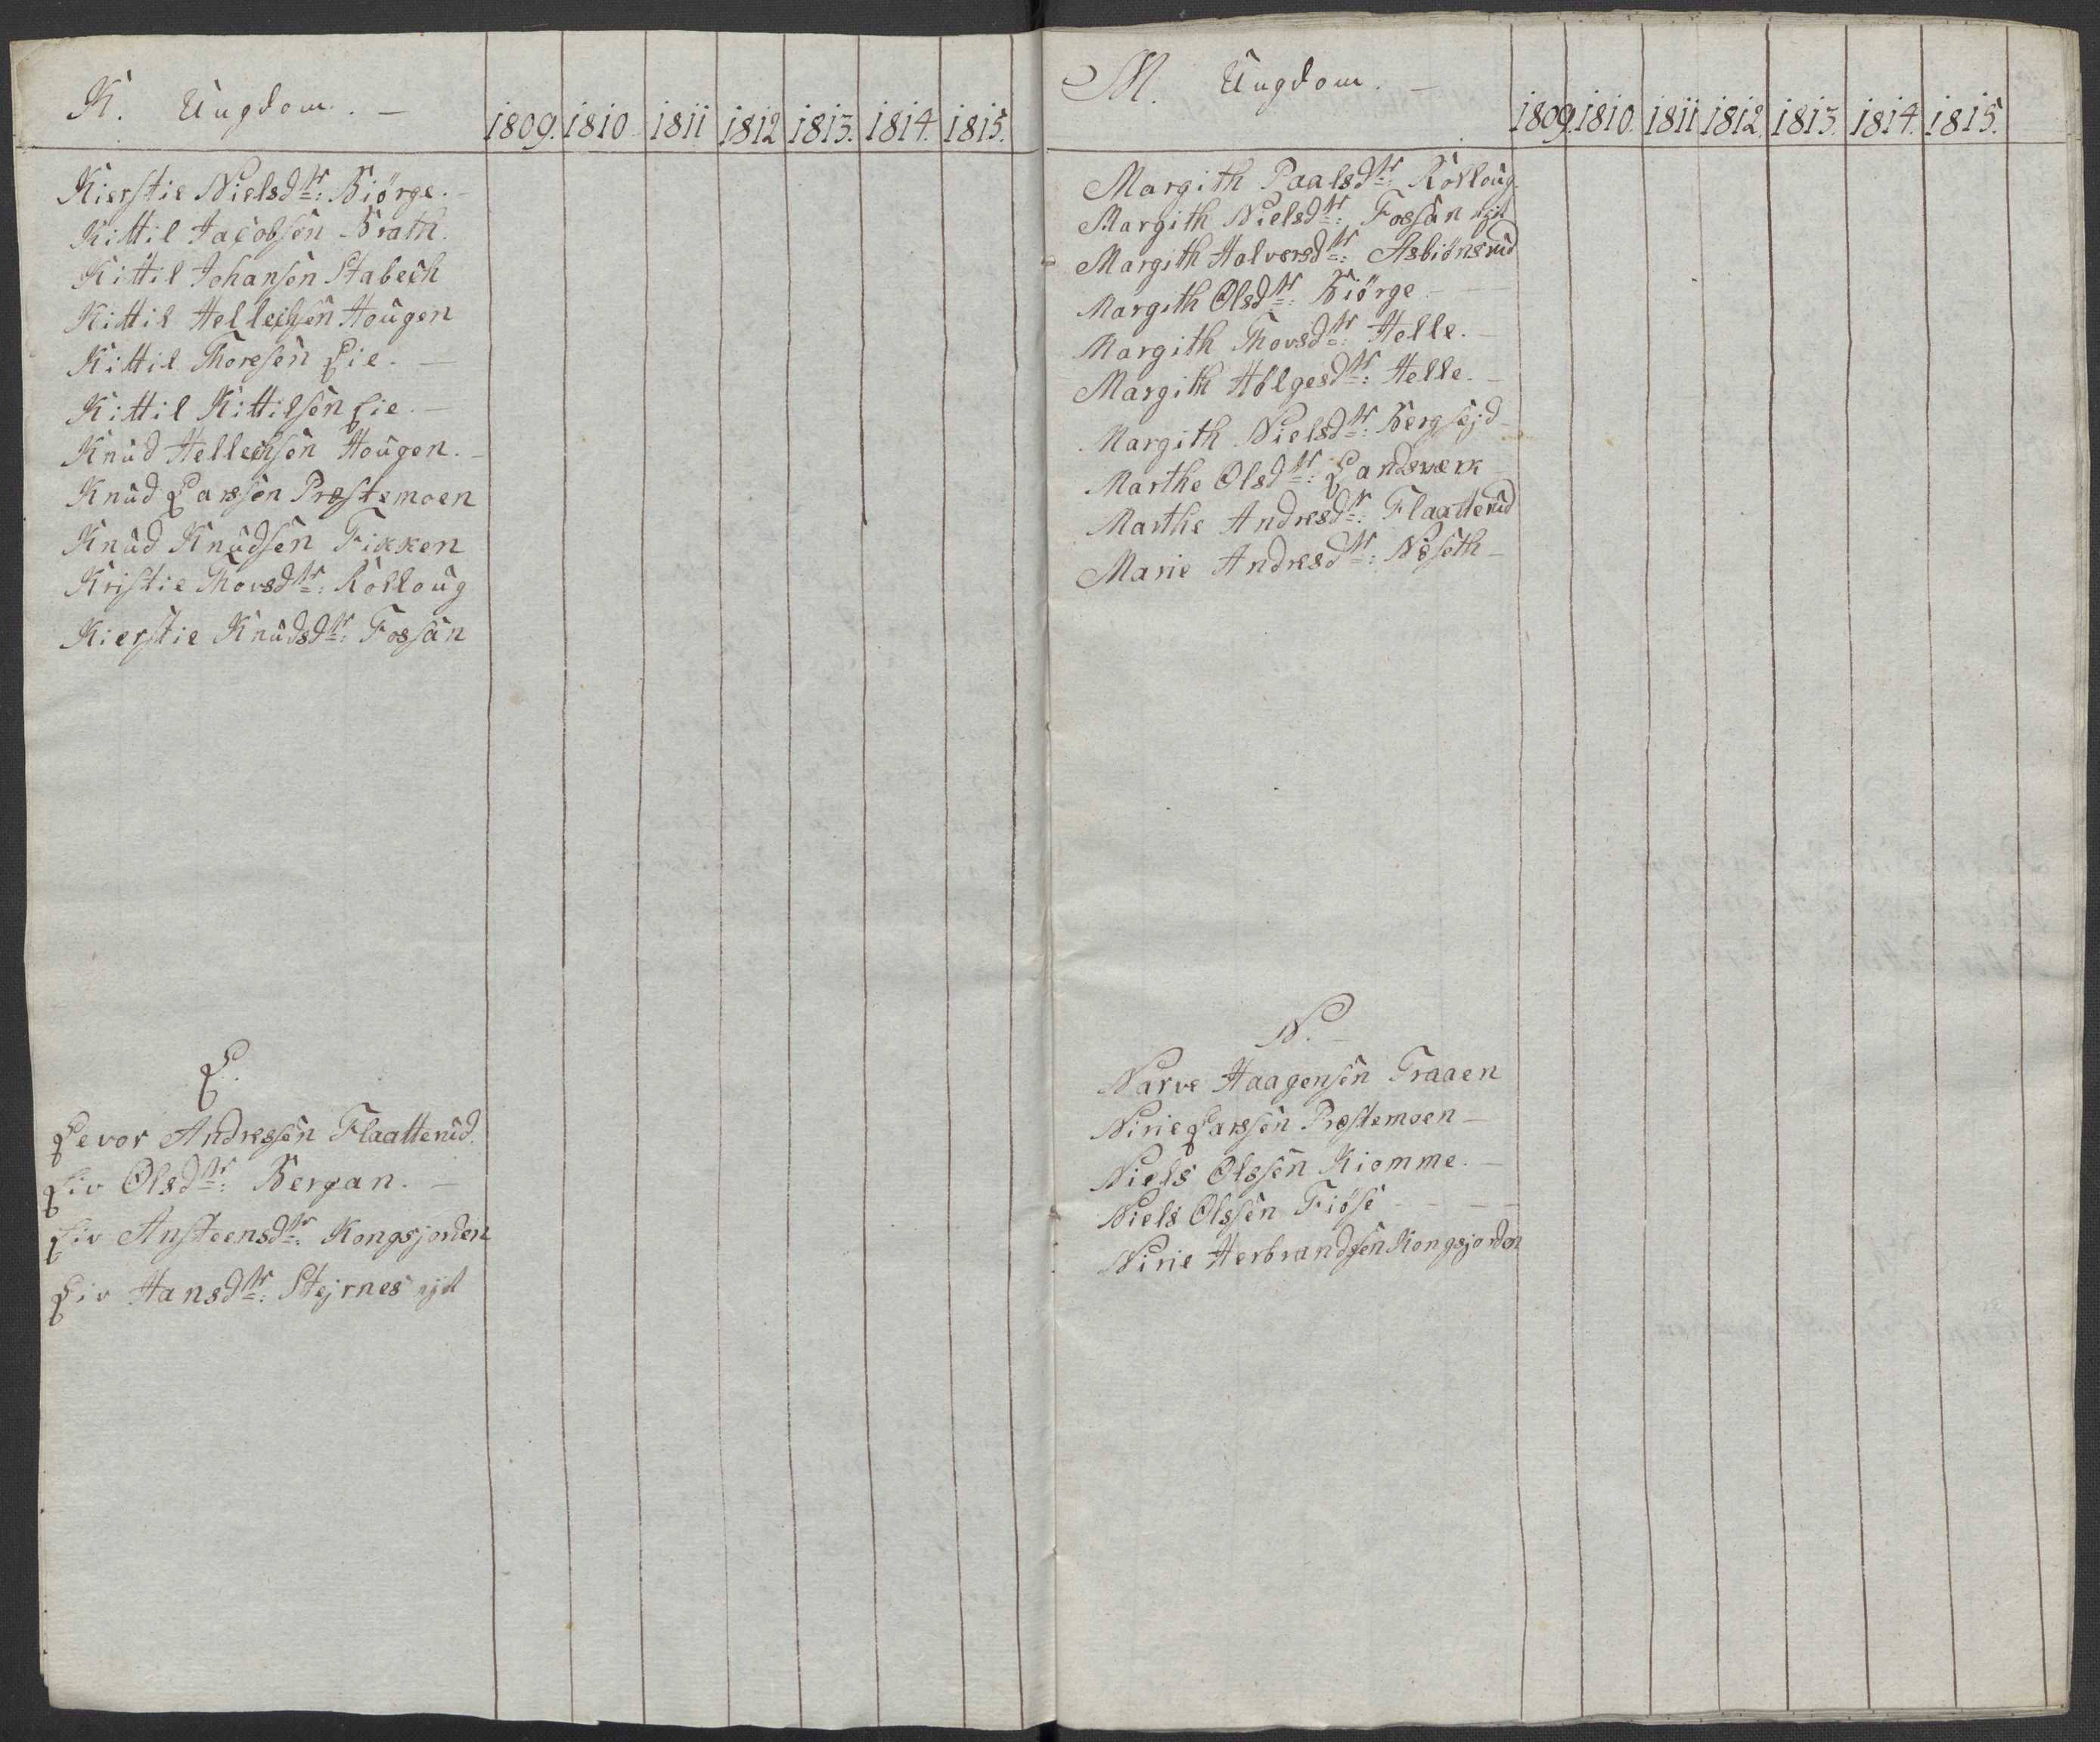 K. Ungdom. —
1809. 1810 1811 1812 1813. 1814. 1815.
Kierstie Nielsdtr: Biörge. —
Kittil Jacobsen Brath.
Kittil Johansen Stabech
Kittil Hellechsen Hougen
Kittil Thoresen Lie. —
Kittil Kittilsen Lie. —
Knud Hellechsen Hougen. —
Knud Larssen Præstemoen
Knud Knudsen Fikken
Kristie Thorsdtr: Rolloug
Kierstie Knudsdtr: Fossan
L.
Levor Andressen Flaatterud.
Liv Olsdtr: Bergan. —
Liv Ansteensdtr: Kongsjorden
Liv Hansdtr: Stejrnes ejd
M. Ungdom. —
1809. 1810. 1811 1812. 1813. 1814. 1815.
Margith Paalsdtr: Rolloug.
Margith Nielsdtr: Fossan ejd
Margith Halvorsdtr: Asbiönsrud
Margith Olsdtr: Biörge — — —
Margith Thovsdtr: Helle. —
Margith Hölgesdtr: Helle. —
Margith Nielsdtr: Bergsejd —
Marthe Olsdtr: Landsværk
Marthe Andresdtr: Flaatterud
Marie Andresdtr: Næseth —
N. —
Narve Haagensen Traaen
Nirie Larssen Præstemoen —
Niels Olssen Kiomme. —
Niels Olssen Fiöse — — — —
Nirie Herbrandsen Kongsjorden